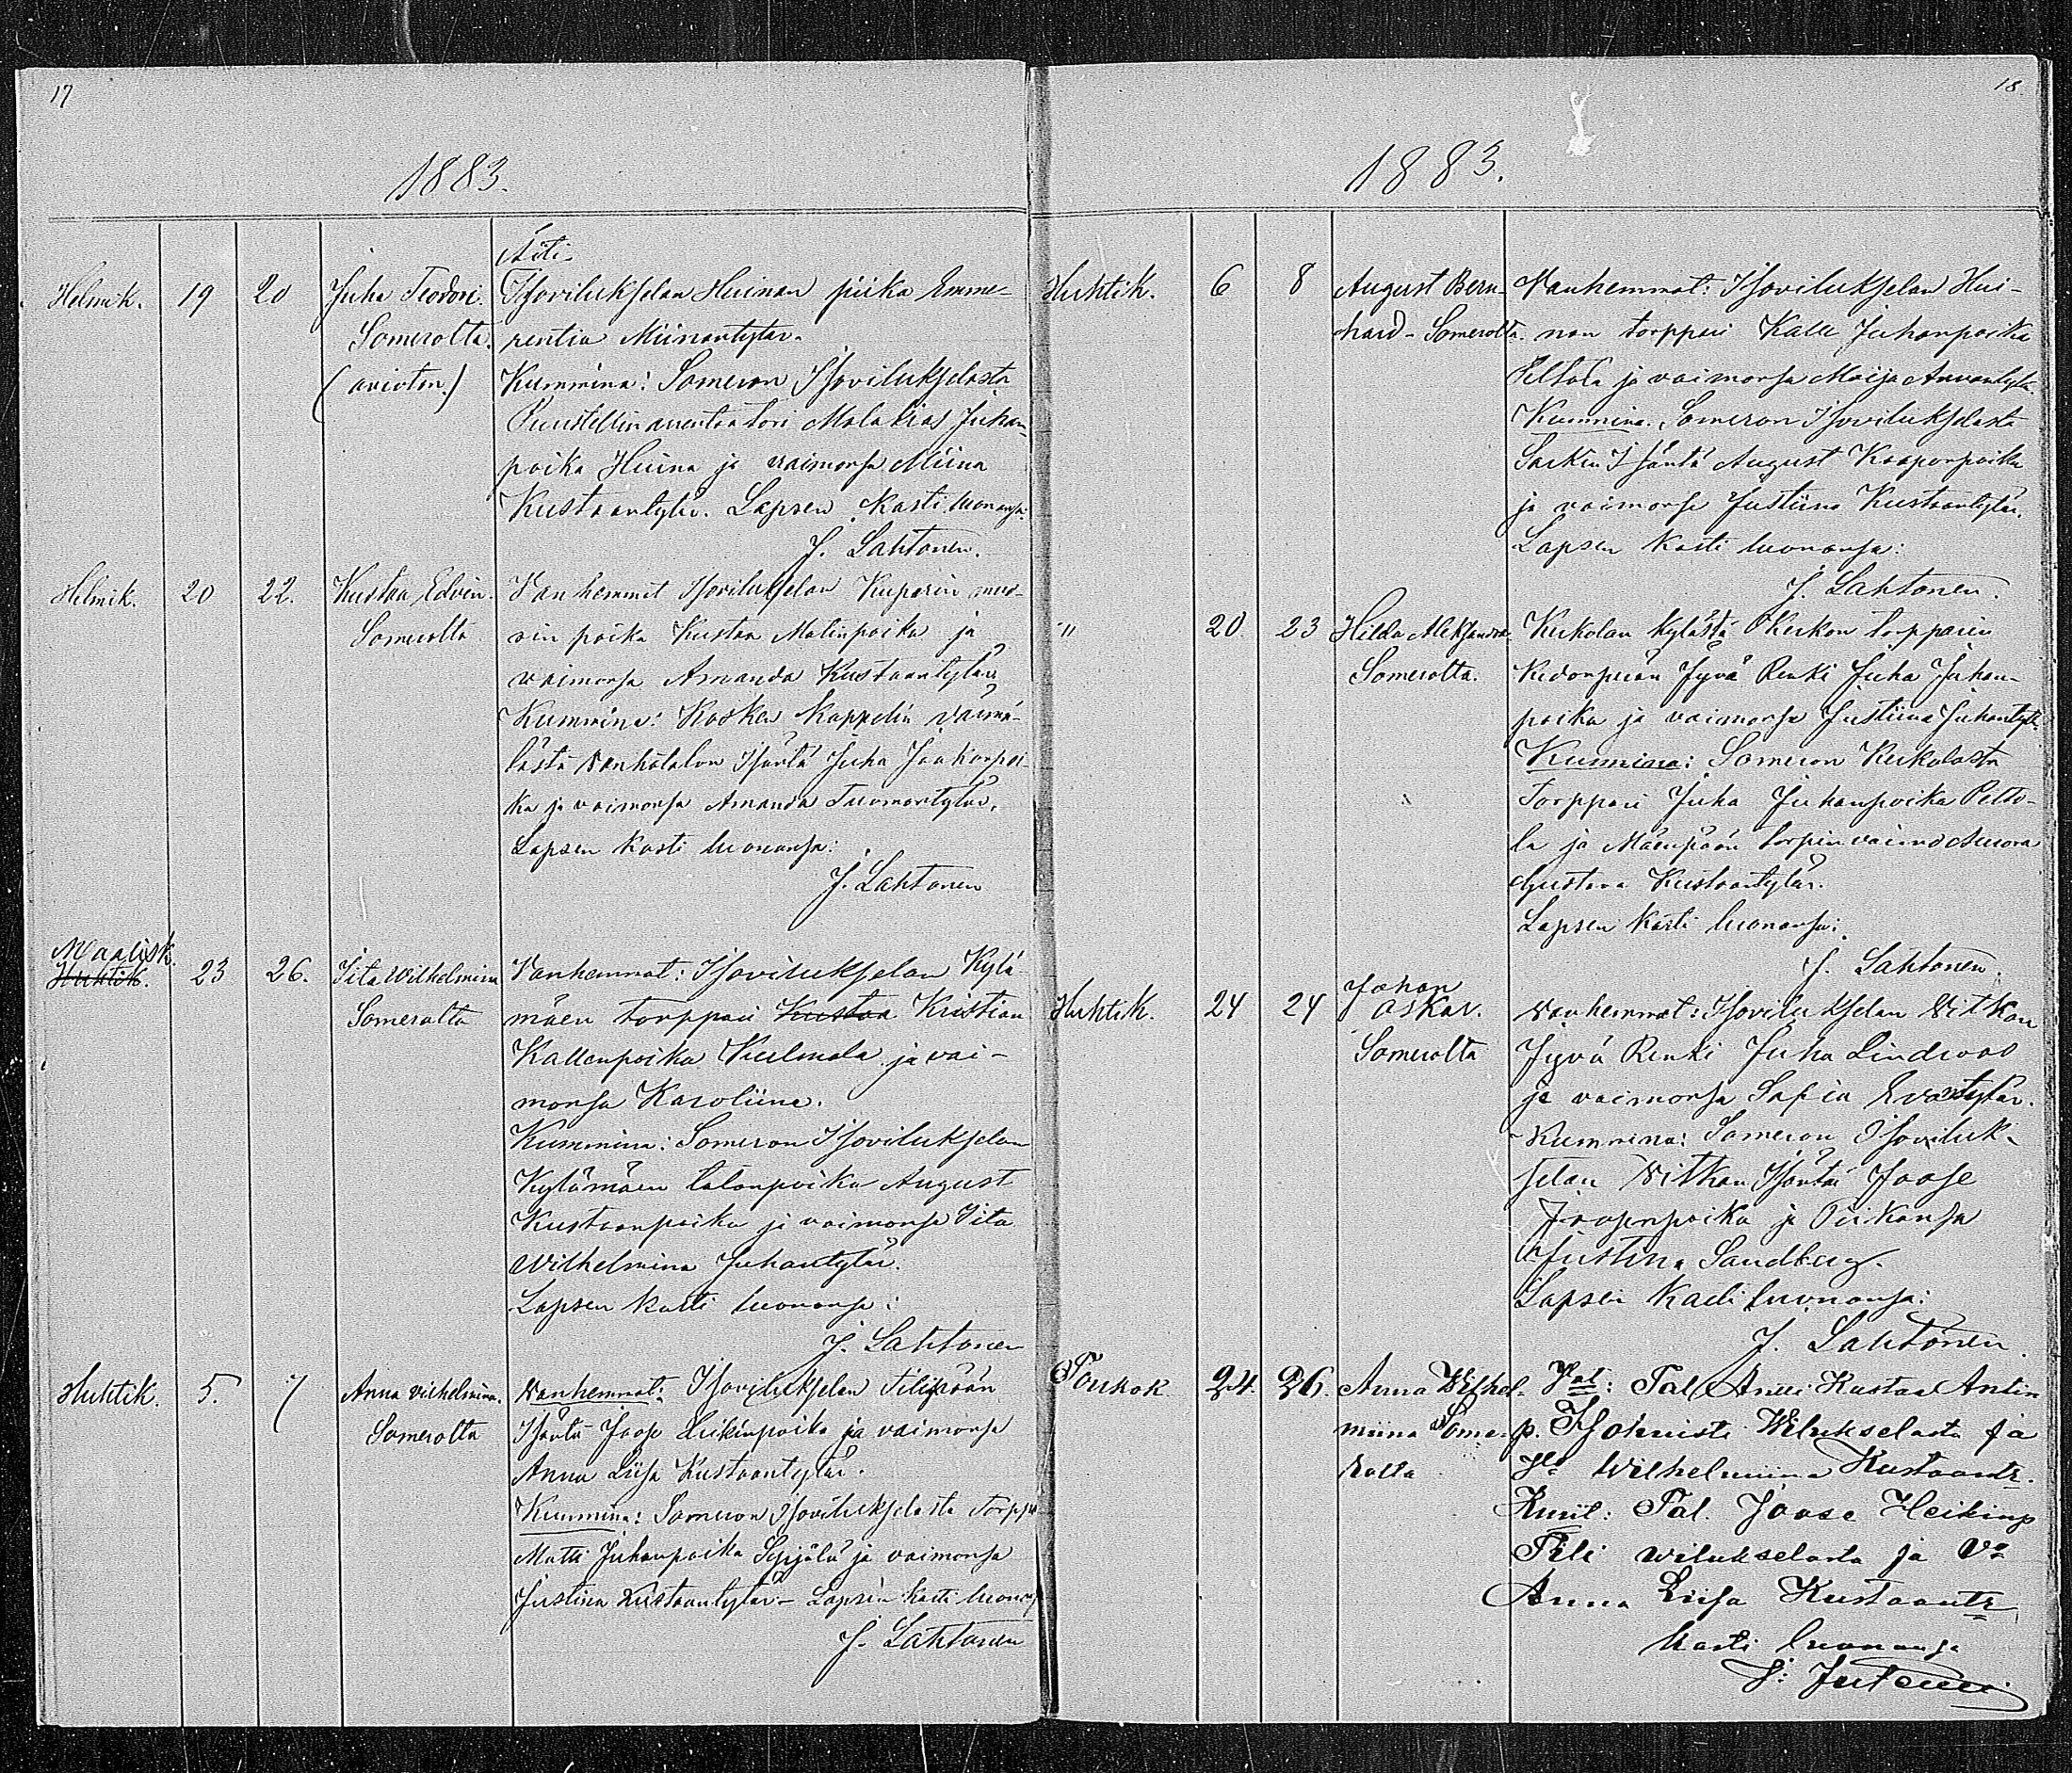 17
1883.
Äiti
Helmik. 19 20 Juha Teodori. Isovilukselan Huinan piika Emme-
Somerolta. rentia Miinantytär.
(avioton.) Kummina: Someron Isoviluksелasta
Puustellin arentaatori Malakias Juhan-
poika Huina ja vaimonsa Miina
Kustaantytär. Lapsen kasti luonansa
J. Lahtonen.
Helmik. 20 22. Kustaa Edvin. Vanhemmat Isovilukselan Kuparin muo-
Somerolta rin poika Kustaa Matinpoika ja
vaimonsa Amanda Kustaantytär
Kummina: Kosken kappelin
lästä Vanhatalon Isäntä Juha Jaakonpoi-
ka ja vaimonsa Amanda Tuomantytär,
Lapsen kasti luonansa:
J. Lahtonen
Maalisk.
Huhtik. 23 26. Iita Wilhelmina Vanhemmat: Isovilukselan Kylä-
Somerolta mäen torppari Kustaa Kristian
Kallenpoika Kulmala ja vai-
monsa Karoliina.
Kummina: Someron Isovilukselan
Kylämäen talonpoika August
Kustaanpoika ja vaimonsa Iita
Wilhelmina Juhantytär.
Lapsen kasti luonansa:
J. Lahtonen
Huhtik. 5. 7 Anna Vilhelmina. Vanhemmat: Isovilukselan Tilipään
Somerolta Isäntä Joose Heikinpoika ja vaimonsa
Anna Liisa Kustaantytär.
Kummina: Someron Isoviluksелasta Torppa
Matti Juhanpoika Seppälä ja vaimonsa
Justina Kustaantytär - Lapsen kasti luonans
J. Lahtonen
18.
1883.
Huhtik. 6 8 August Bern- Vanhemmat: Isovilukselan Hui-
hard - Somerolta. nan torppari Kalle Juhanpoika
Peltola ja vaimonsa Maija Annantytär.
Kummina. Someron Isoviluksелasta
Isäntä August Kaaponpoika
ja vaimonsa Justiina Kustaantytär.
Lapsen kasti luonansa:
J. Lahtonen.
" 20 23 Hilda Aleksandra Kerkolan kylästä Kerkon torpparin
Somerolta. Kedonperän Jyvä Renki Juha Juhan-
poika ja vaimonsa Justiina Juhantytär.
Kummina: Someron Kerkolasta
Torppari Juha Juhanpoika Pelto-
la ja Mäenpään torpin vaimo
Gustava Kustaantytär.
Lapsen kasti luonansa:
J. Lahtonen.
Huhtik. 24 24 Johan
Oskar. Vanhemmat: Isovilukselan Vitkan
Somerolta Jyvä Renki Juha Lindroos
ja vaimonsa Sofia Evantytär.
Kummina: Someron Isoviluk-
selan Vitkan Isäntä Joose
Joosenpoika ja Piikansa
Justina Sandberg.
Lapsen kasti luonansa:
J. Lahtonen.
Toukok 24. 26. Anna Wilhel- Vat: Tal. Antti Kustaa Antin
miina Some- p. Isohuisti Wilukselasta ja
rolta Wilhelmiina Kustaantr.
Tal. Joose Heikinp
Tili Wilukselasta ja Vo
Anna Liisa Kustaantr
kasti luonansa
J. Jutemi